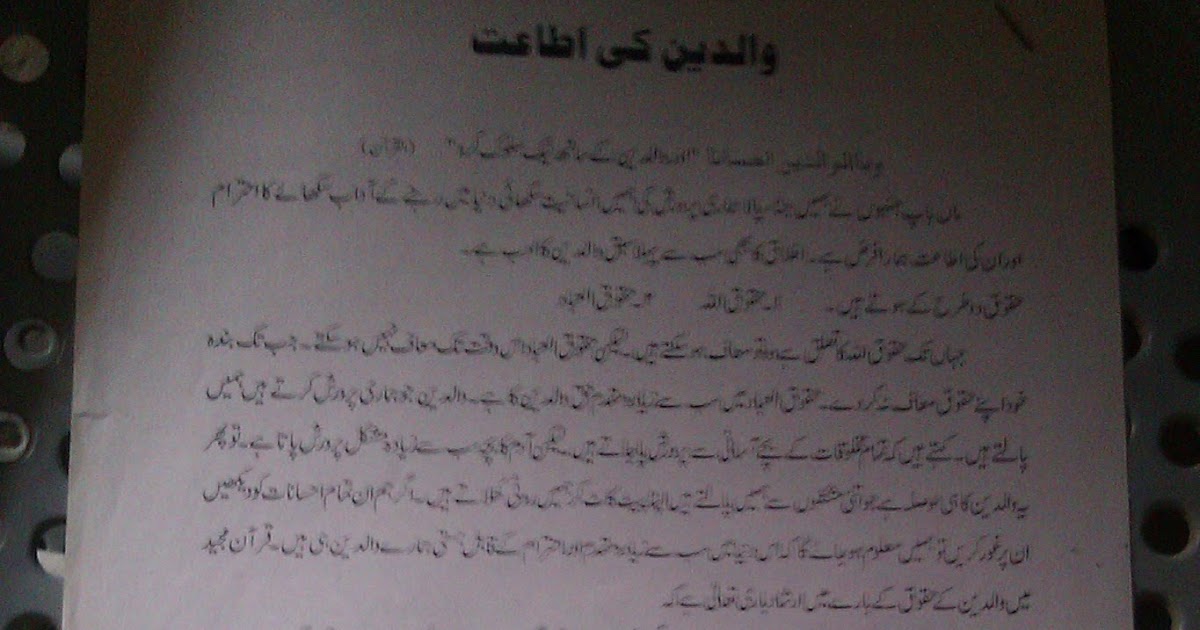 والدین کی اطاعت
وبالوالدین احسانا "اور والدین کے ساتھ نیک سلوک کرو" (القرآن)
ماں باپ جنہوں نے ہمیں پالا ہماری پرورش کی ہمیں انسانیت سکھائی دنیا میں رہنے کے آداب سکھائے کا احترام
اور ان کی اطاعت ہمارا فرض ہے۔ اخلاق کا بھی سب سے پہلا سبق والدین کا ادب ہے۔
حقوق دو طرح کے ہوتے ہیں۔ ۱۔ حقوق اللہ ۲۔ حقوق العباد
جہاں تک حقوق اللہ کا تعلق ہے وہ تو معاف ہو سکتے ہیں۔ لیکن حقوق العباد اس وقت تک معاف نہیں ہو سکتے۔ جب تک بندہ
خود اپنے حقوق معاف نہ کر دے۔ حقوق العباد میں سب سے زیادہ مقدم حق والدین کا ہے۔ والدین جو ہماری پرورش کرتے ہیں ہمیں
پالتے ہیں۔ کہتے ہیں کہ تمام مخلوقات کے بچے آسانی سے پرورش پا جاتے ہیں۔ لیکن آدم کا بچہ سب سے زیادہ مشکل پرورش پاتا ہے۔ تو پھر
یہ والدین کا ہی حوصلہ ہے جو اتنی مشقتوں سے ہمیں پالتے ہیں اپنا پیٹ کاٹ کر ہمیں روٹی کھلاتے ہیں۔ اگر ہم ان تمام احسانات کو دیکھیں
ان پر غور کریں تو ہمیں معلوم ہو جائے گا کہ اس دنیا میں سب سے زیادہ مقدم اور احترام کے قابل ہستی ہمارے والدین ہی ہیں۔ قرآن مجید
میں والدین کے حقوق کے بارے میں ارشاد باری تعالیٰ ہے کہ